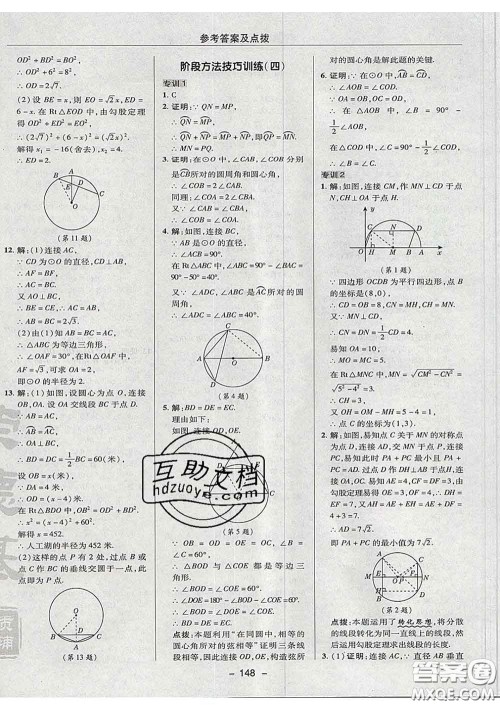 参考答案及点拨
OD²+BD²=OB²,
∴OD²+6²=8².
∴OD=2√7.
(2)设BE=x,则EO=√2x,ED=
6-x.在Rt△EOD中,由勾股定理
得OD²+ED²=EO²,
∴(2√7)²+(6-x)²=(√2x)².
解得x₁=-16(舍去),x₂=4.
∴ED=2.
(第11题)
12.解:(1)连接AC,
∵CD为⊙O的直径,CD⊥AB,
∴AF=BF.
∴AC=BC.
又AO⊥BC,
∴BE=CE.
∴AB=AC.
∴AB=BC=2√3.
(2)由(1)知AB=BC=AC,
∴△ABC为等边三角形.
∴∠OAF=30°,在Rt△OAF中,
AF=√3,可求OA=2.
即⊙O的半径为2.
13.解:(1)如图,设圆心为点O,连接
OB,OA,设OA交线段BC于点D.
∵AB=AC,
∴AB=AC.
∴OA⊥BC.
∴BD=DC=1/2BC=60(米),
设OB=x(米),
∵DA=4米,
∴OD=(x-4)米.
在Rt△BDO中,OB²=OD²+BD²,
∴x²=(x-4)²+60².
解得x=452.
∴人工湖的半径为452米.
(2)过这样的点P有2处,过点B或点
C作BC的垂线交圆于一点,此
点即为点P.
(第13题)
阶段方法技巧训练(四)
专训1
1.C
2.证明:∵QN=MP,
∴QN=MP.
∴QN+NP=MP+NP,即QP=MN.
∴MN=PQ.
3.证明:在⊙O中,∠CAB,∠COB分别
是CB所对的圆周角和圆心角,
∴∠COB=2∠CAB.
同理,∠COA=2∠CBA.
又∵∠COB=∠COA,
∴∠CAB=∠CBA.
4.解:如图,连接BC,
∵AB是⊙O的直径,
∴∠ACB=90°.
在Rt△ABC中,∠ABC=90°-∠BAC=
90°-50°=40°.
又∵∠ABC,∠ADC是AC所对的圆
周角,
∴∠ADC=∠ABC=40°.
(第4题)
5.解:BD=DE=EC.
理由如下:
如图,连接OD,OE.
(第5题)
∵OB=OD=OE=OC,∠B=
∠C=60°,
∴△BOD与△COE都是等边三
角形.
∴∠BOD=∠COE=60°.
∴∠DOE=180°-∠BOD-∠COE=60°.
∴∠BOD=∠DOE=∠COE.
∴BD=DE=EC.
点拨:本题利用“在同圆中,相等的
圆心角所对的弦相等”证明三条线
段相等,因此连接OD,OE,构造弦所
对的圆心角是解此题的关键.
6.证明:∵在⊙O中,AB=CD,
∴∠AOB=∠COD.
∵OA=OB,OC=OD,
∴在△AOB中,∠B=90°-
1/2∠AOB,
在△COD中,∠C=90°-1/2∠COD,
∴∠B=∠C.
专训2
1.解:如图,连接CM,作MN⊥CD于点
N,CH⊥OA于点H.
(第1题)
∵四边形OCDB为平行四边形,点B
的坐标是(8,0),
∴CD=OB=8,CN=MH,CH=MN.
又∵MN⊥CD,
∴CN=DN=1/2CD=4.
易知OA=10,
∴MO=MC=5.
在Rt△MNC中,MN=√CM²-CN²=
√5²-4²=3.
∴CH=3.
又OH=OM-MH=5-4=1,
∴点C的坐标为(1,3).
2.解:如图,易知点C关于MN的对称点
为点D,连接AD,交MN于点P,连接
PC,易知此时PA+PC最小且PA+
PC=AD.过点D作DE⊥AC,交AC的
延长线于点E,易知AE=AC+CE=
4+3=7,DE=CD=7,在Rt△ADE中,由
勾股定理易得AD=7√2.
∵PA+PC≥AD,
∴AD=7√2,
即PA+PC的最小值为7√2.
(第2题)
点拨:本题运用了转化思想,将分散
的线段转化为同一直线上的线段,然
后运用勾股定理求出线段的长度.
3.(1)证明:连接AC,∵直径AB垂直于
- 148 -
互助文档
hdzuoye.com
答案圈
MXQE.COM